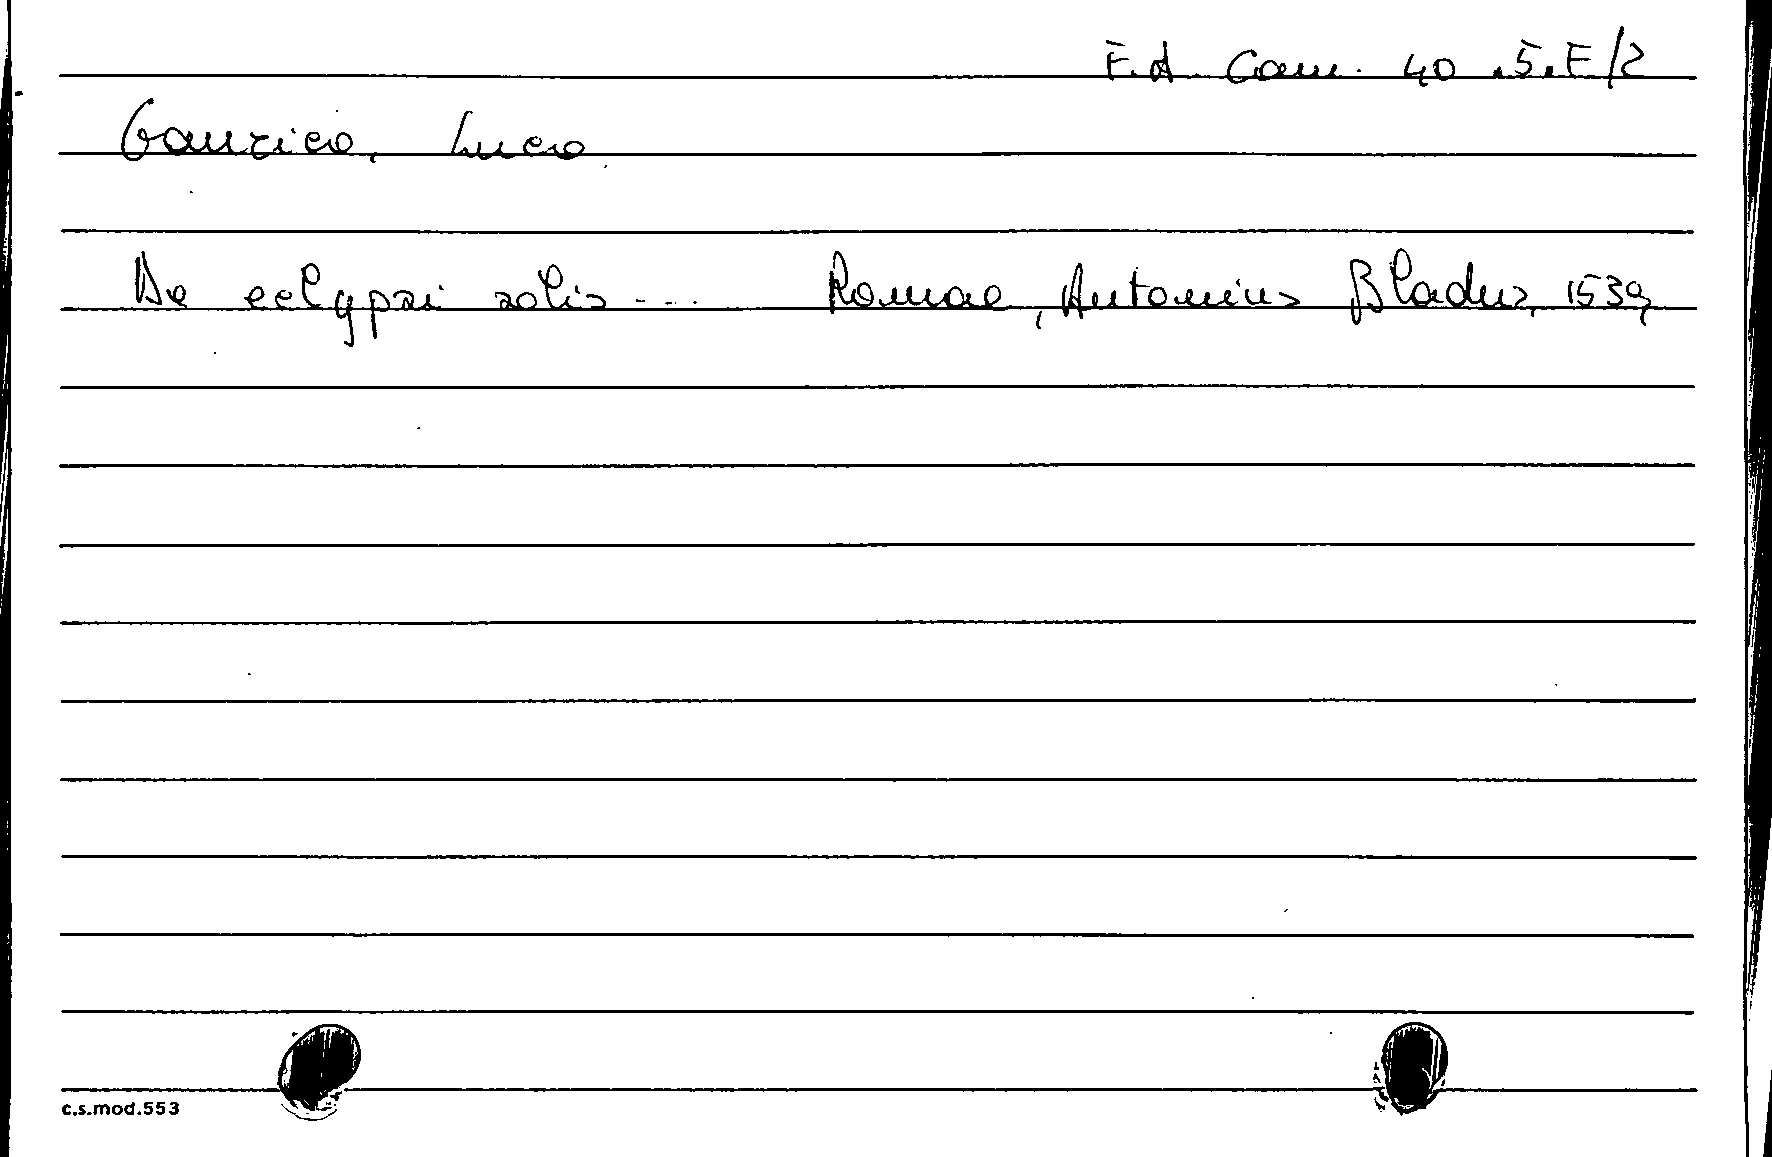 F.A. Cam. 40 .5.F/2
Gaurico, Luca
De eclypsi solis... Romae, Antonius Bladus, 1539
c.s.mod.553